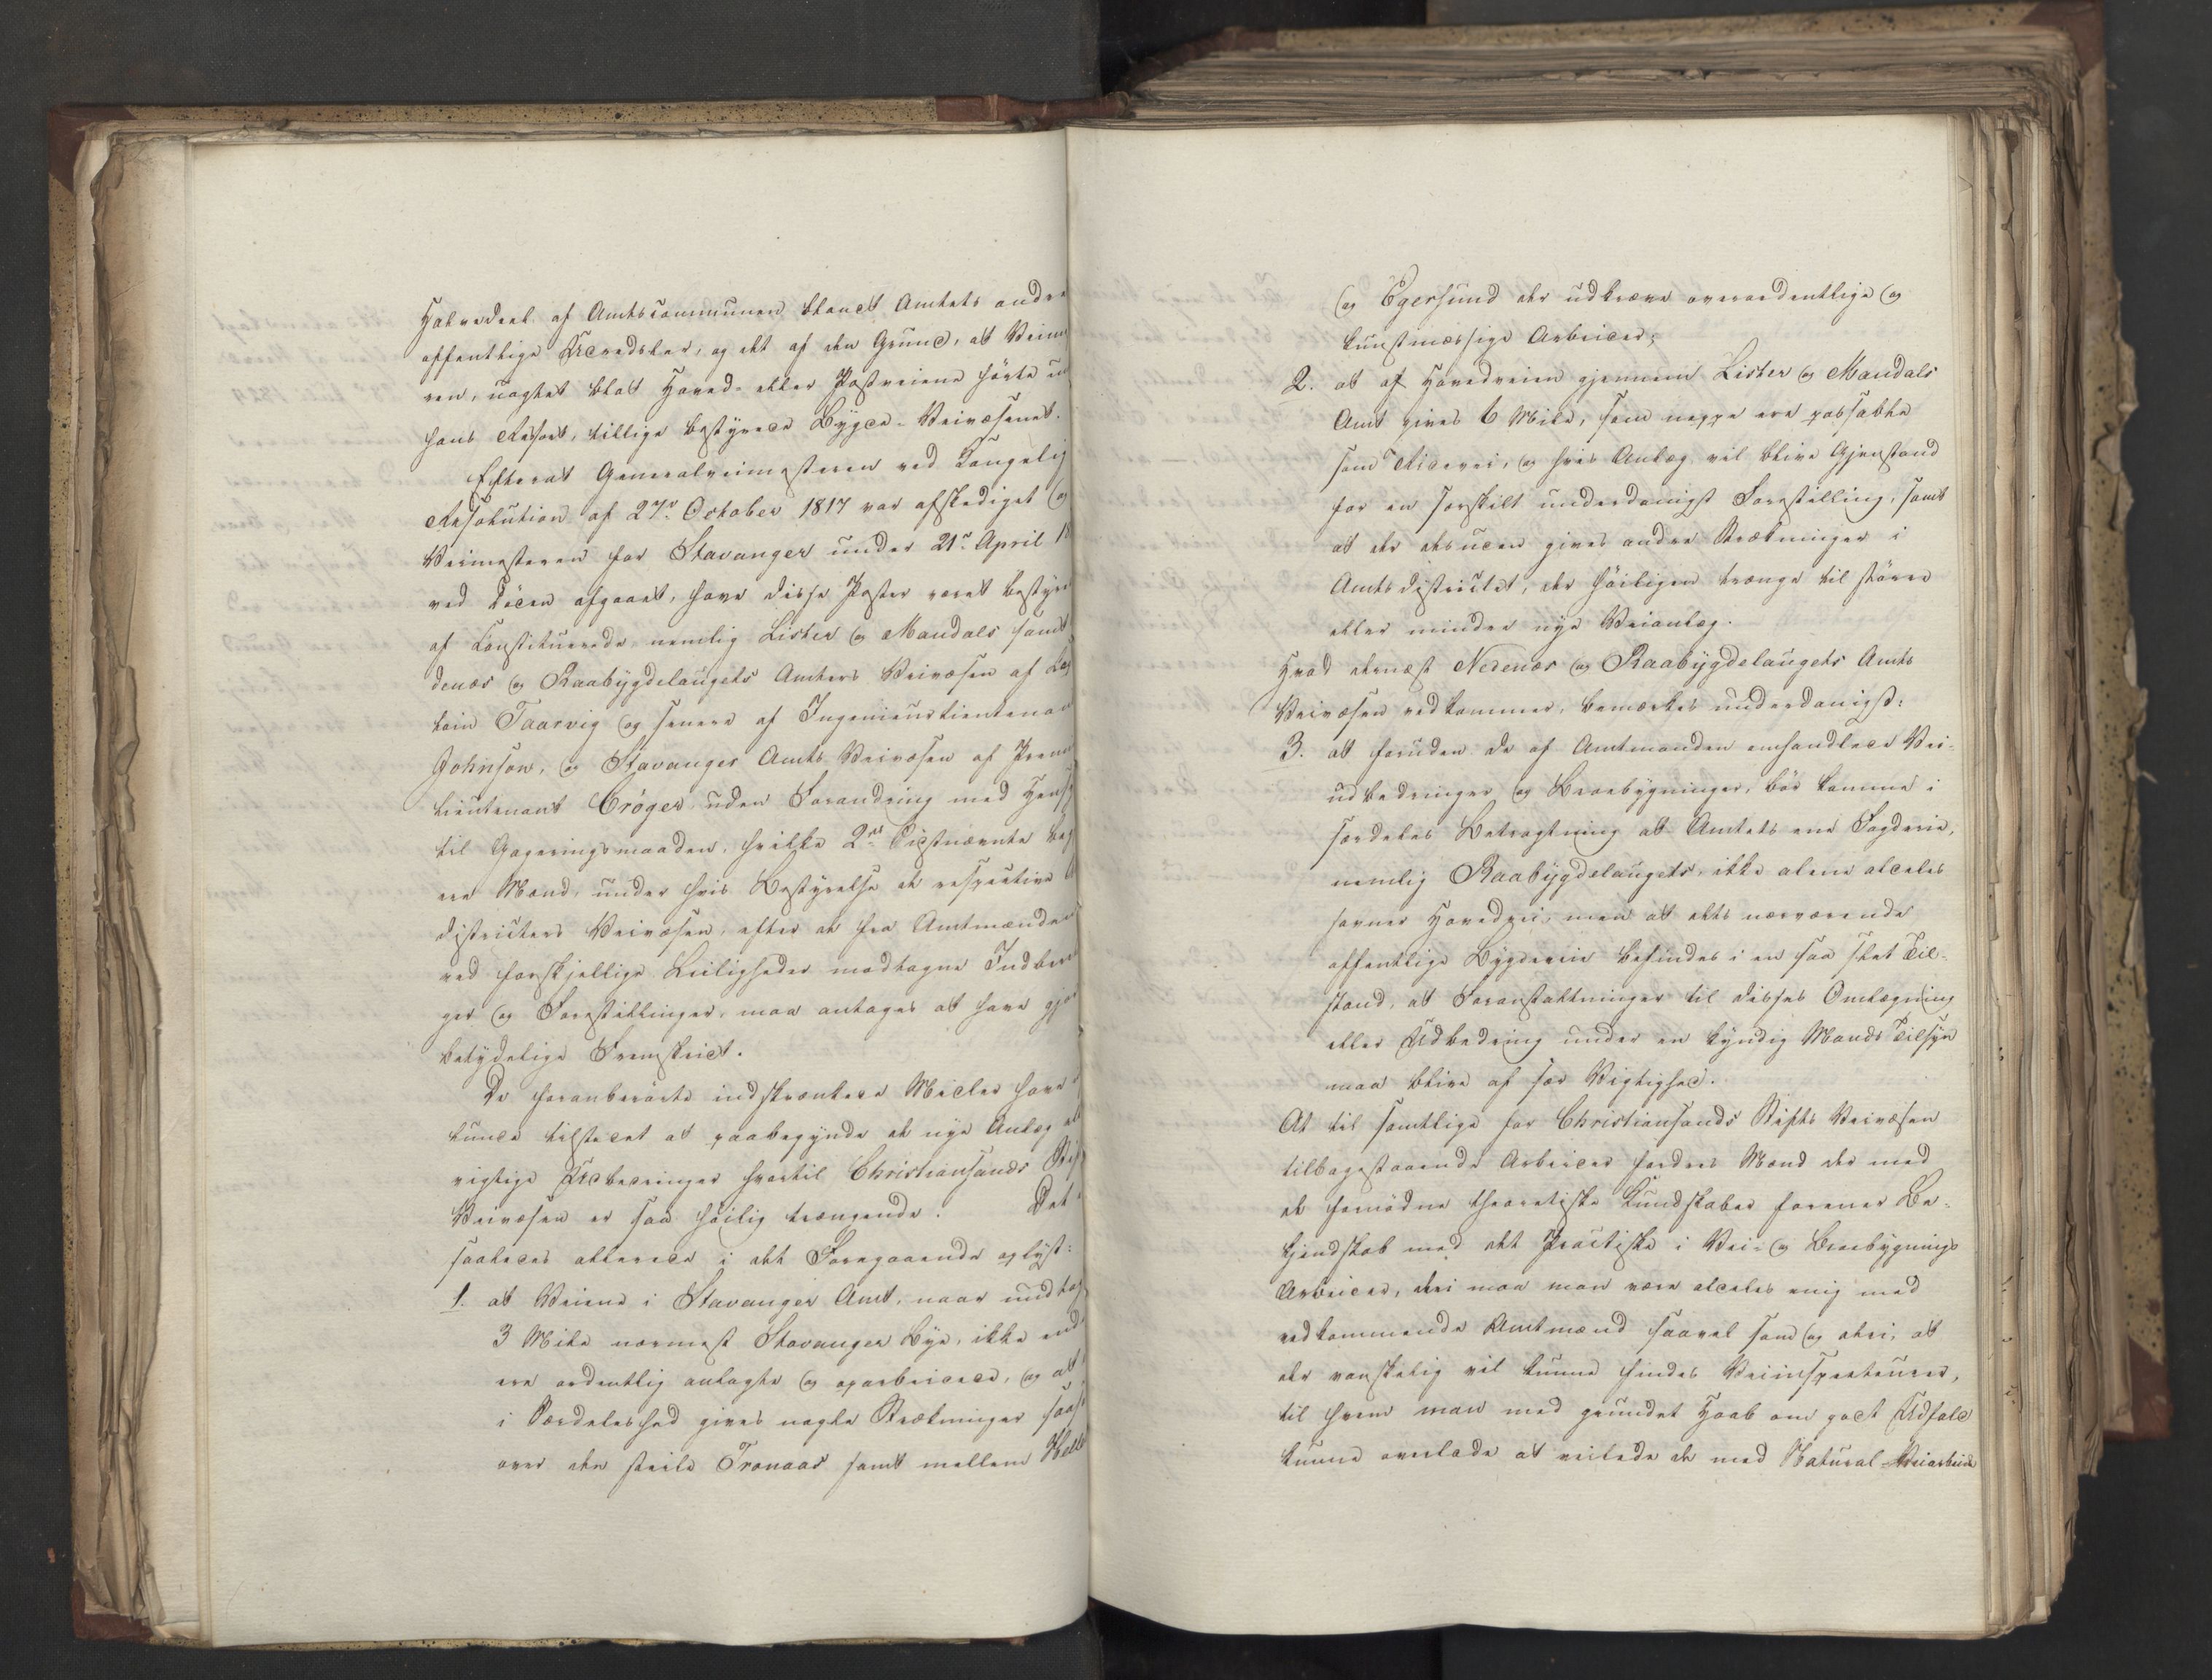 Halvedeel af Amtscommunen blandt Amtets andre
offentlige Udredsler, og det af den Grund, at Veime
ren, uagtet blot Hoved- eller Postveiene hörte un
hans Ressort, tillige bestyrede Bygde-Veivæsenet.
Efterat Generalveimesteren ved Kongelig
Resolution af 27de October 1817 var afskediget og
Veimesteren for Stavanger under 21de April 18
ved Döden afgaaet, have disse Poster været bestyre
af Constituerede, nemlig Lister og Mandals samt
denæs og Raabygdelaugets Amters Veivæsen af Cap
tain Taarvig og senere af Ingenieurlieutenan
Johnson, og Stavanger Amts Veivæsen af Premi
lieutenant Cröger uden Forandring med Hensy
til Gageringsmaaden, hvilke 2de Sidstnævnte beg
ere Mænd, under hvis Bestyrelse de respective
Districters Veivæsen, efter de fra Amtmændene
ved forskjellige Leiligheder modtagne Indberet
ger og Forestillinger, maa antages at have gjor
betydelige Fremskridt.
De foranberörte indskrænkede Midler have
kunde tilstedet at paabegynde de nye Anlæg el
vigtige Udbedringer hvortil Christiansands Stif
Veivæsen er saa höilig trængende. Det
saaledes allerede i det Foregaaende oplyst:
1. at Veiene i Stavanger Amt, naar undtag
3 Mile nærmest Stavanger Bye, ikke end
ere ordentlig anlagte og oparbeidede, og at
i Særdeleshed gives nogle Strækninger saas
over den steile Tronaas samt mellem Hell
og Egersund der udkræve overordentlige og
kunstmæssige Arbeider;
2. at af Hovedveien gjennem Lister og Mandals
Amt gives 6 Mile, som neppe ere passable
som Rideveie, og hvis Anlæg vil blive Gjenstand
for en særskilt underdanigst Forestilling, samt
at der desuden gives andre Strækninger i
Amtsdistrictet, der höiligen trænge til större
eller mindre nye Veianlæg.
Hvad dernæst Nedenæs og Raabygdelaugets Amts
Veivæsen vedkommer, bemærkes underdanigst:
3. at foruden de af Amtmanden omhandlede Vei-
udbedringer og Broebygninger, bör komme i
særdeles Betragtning at Amtets ene Fogderie,
nemlig Raabygdelaugets, ikke alene aldeles
savner Hovedvei, men at dets nærværende
offentlige Bygdeveie befindes i en saa slet Til-
stand, at Foranstaltninger til disses Omlægning
eller Udbedring under en kyndig Mands Tilsyn
maa blive af stor Vigtighed.
At til samtlige for Christiansands Stifts Veivæsen
tilbagestaaende Arbeider fordres Mænd der med
de fornödne theoretiske Kundskaber forener Be-
kjendskab med det Practiske i Vei- og Broebygnings
Arbeider, deri maa man være aldeles enig med
vedkommende Amtmænd saavel som og deri, at
der vanskelig vil kunne findes Veiinspecteurer,
til hvem man med grundet Haab om godt Udfald
kunne overlade at veilede de med Natural-Veiarbeide